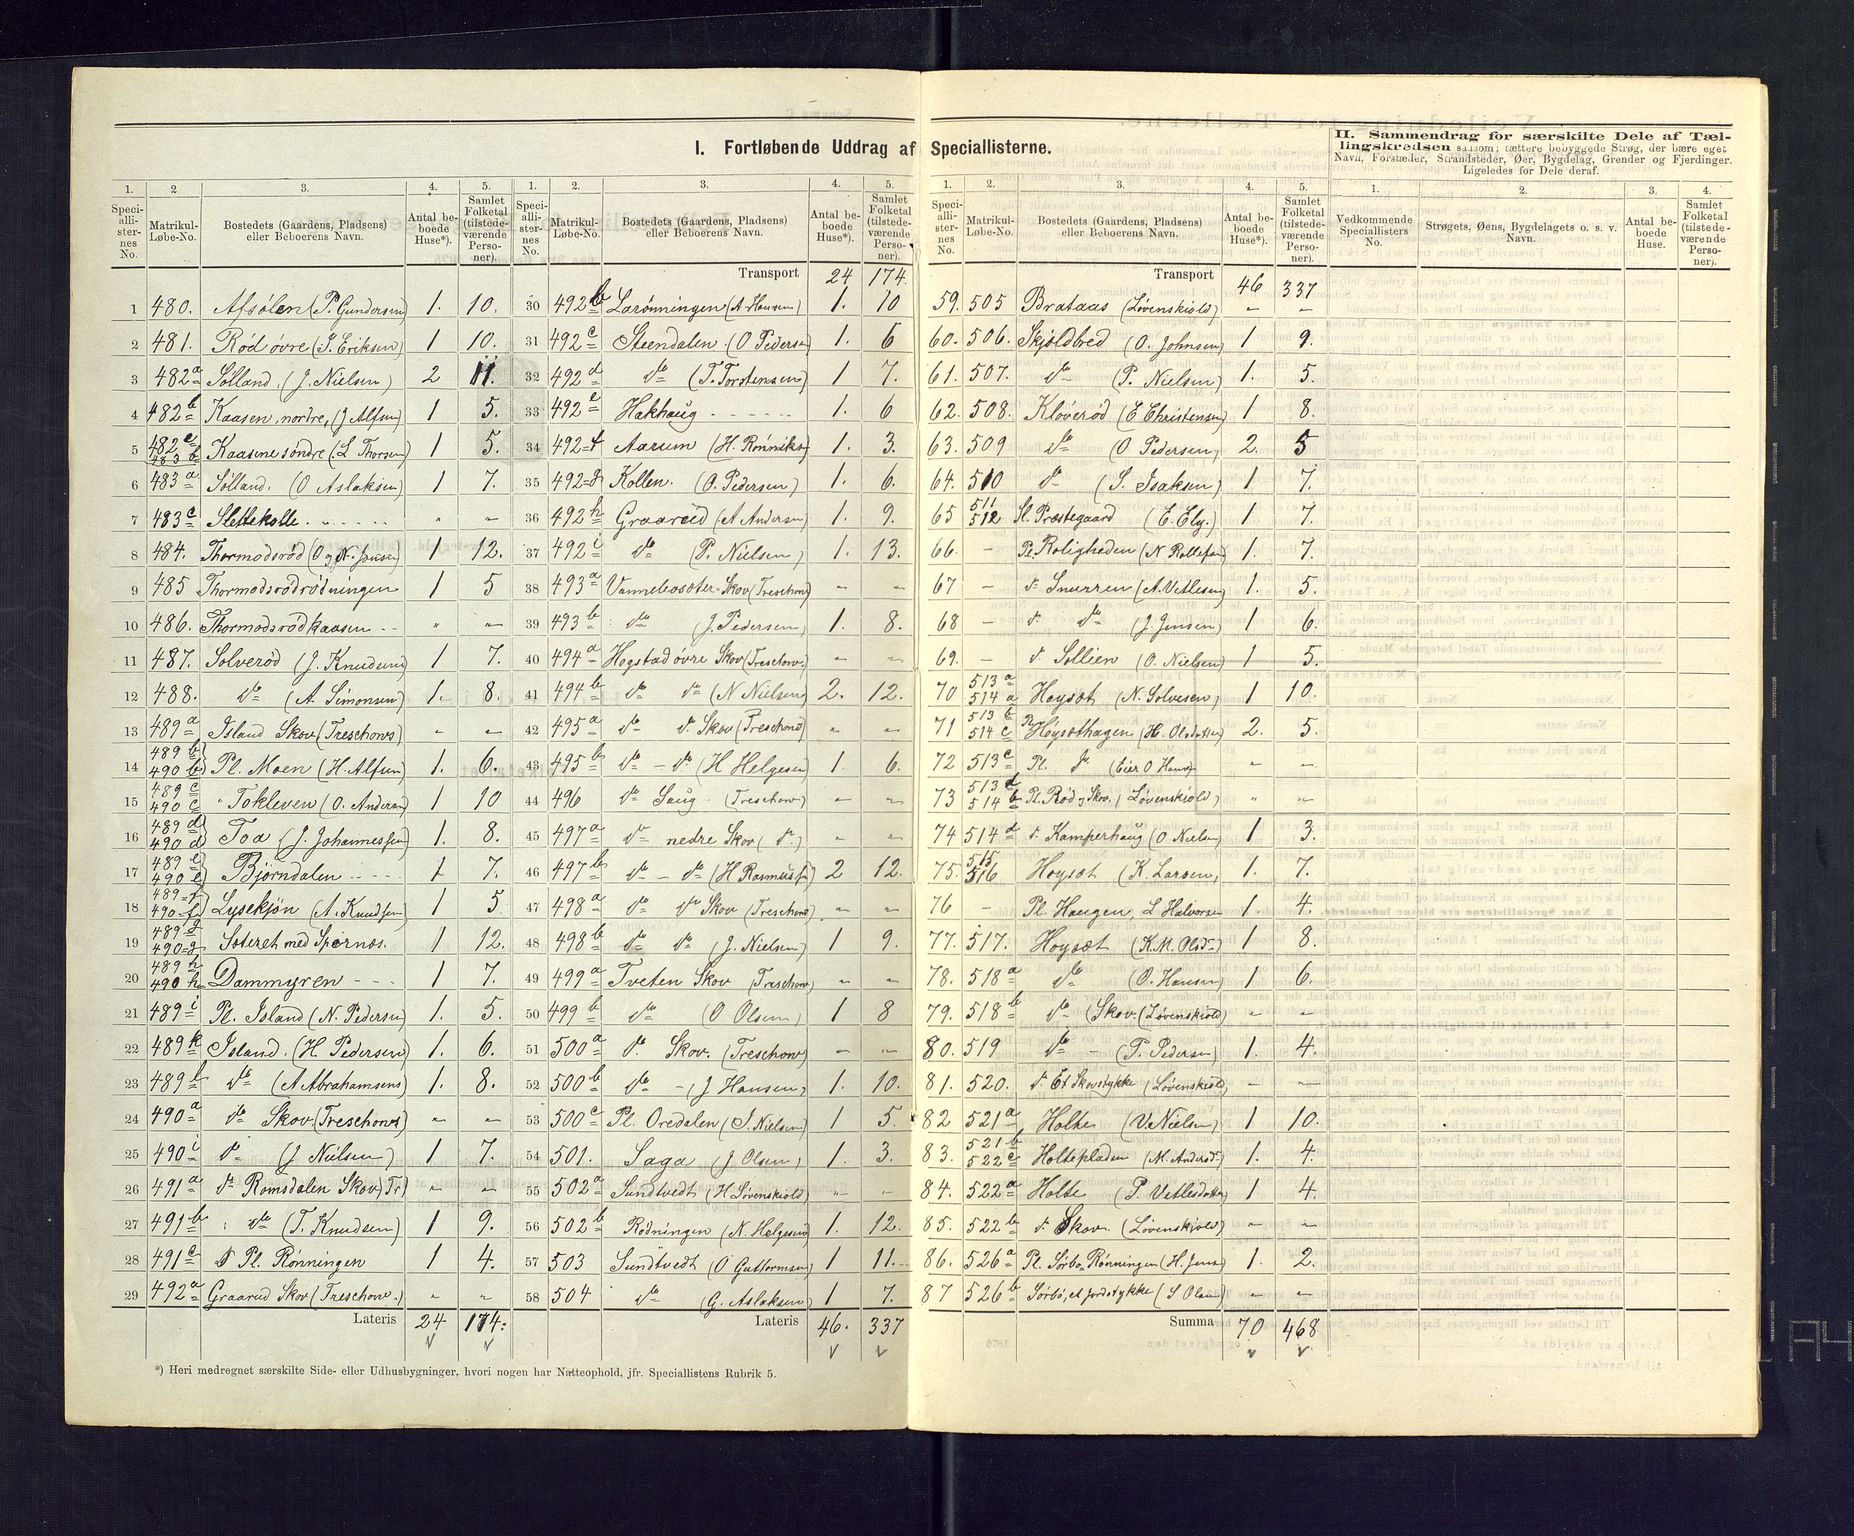 I. Fortløbende Uddrag af Speciallisterne.
II. Sammendrag for særskilte Dele af Tællingskredsen saasom: tættere bebyggede Strøg, der bære eget
Navn, Forstæder, Strandsteder, Øer, Bygdelag, Grender og Fjerdinger.
Ligeledes for Dele deraf.
1. 2 3. 4. 5.
Speciallisternes No. Matrikul-Løbe-No. Bostedets (Gaardens, Pladsens) eller Beboerens Navn. Antal beboede Huse*). Samlet Folketal (tilstedeværende Personer).
1 480. Afsølen (P. Gundersen) 1. 10.
2 481. Rød øvre (J. Eriksen) 1 10.
3 482a Sølland. (J. Nielsen) 2 11.
4 482b Kaasen, nordre, (J Alfsen) 1 5.
5 482c 483b Kaasene søndre (L Thorsen) 1 5.
6 483a Sølland. (O Aslaksen) 1 7.
7 483c Slettekolle " "
8 484. Thormodsrød (O og N. Jensen) 1 12.
9 485 Thormodsrødrødningen 1 5
10 486. Thormodsrødkaasen " "
11 487. Solverød (J. Knudsen) 1 7.
12 488. do (A. Simonsen) 1. 8.
13 489a Island Skov (Treschows) " "
14 489b 490b Pl. Moen (H. Alfsen) 1. 6.
15 489c 490c " Tokleven (O. Andersen) 1 10
16 489d 490d Toa (J. Johannessen) 1. 8.
17 489e 490e Bjørndalen 1 7.
18 489f 490f Lysekjøn (A. Knudsen) 1 5
19 489g 490g Soteret med Spornes. 1 12.
20 489h 490h Dammyren 1 7.
21 489i Pl. Island (N. Pedersen) 1. 5.
22 489k Island. (H. Pedersen) 1. 6.
23 489l do (A Abrahamsens) 1. 8.
24 490a do Skov. (Treschows) " "
25 490i do (J Nielsen) 1 7.
26 491a do Romsdalen Skov (Tr) " "
27 491b do (T. Knudsen) 1 9.
28 491c d Pl. Rønningen 1 4.
29 492a Graarud Skov (Treschow.) " "
Lateris 24 174.
1. 2. 3. 4. 5.
Speciallisternes No. Matrikul-Løbe-No. Bostedets (Gaardens, Pladsens) eller Beboerens Navn. Antal beboede Huse*). Samlet Folketal (tilstedeværende Personer).
Transport 24 174.
30 492b Larønningen (A. Hansen) 1. 10
31 492c Steendalen. (O Pedersen 1. 6
32 492d do (T. Torstensen) 1 7.
33 492e Hakhaug 1. 6
34 492f Aarum (H. Rønniks) 1. 3.
35 492g Kollen. (O. Pedersen) 1. 6.
36 492h Graarud (A Andersen) 1. 9.
37 492i do (P. Nielsen) 1. 13.
38 493a Vannebosøter-Skov (Treschow) " "
39 493b do (J. Pedersen) 1. 8.
40 494a Hogstad øvre Skov (Treschow.) " "
41 494b do do (N Nielsen) 2. 12.
42 495a do do Skov (Treschow) " "
43 495b do - do (H Helgesen 1. 6.
44 496 do Saug. (Treschow) " "
45 497a do nedre Skov (do.) " "
46 497b do - do (H Rasmussen) 2 12.
47 498a do do Skov (Treschow) " "
48 498b do do (J. Nielsen) 1 9.
49 499a Tveten Skov (Treschow) " "
50 499b do (O Olsen) 1 8
51 500a do. Skov. (Treschow) " "
52 500b do - (J Hansen) 1. 10.
53 500c Pl. Oredalen (J. Nielsen) 1 5.
54 501. Saga (J Olsen) 1. 3.
55 502a Sundtvedt (H Løvenskiold) " "
56 502b Rødningen (N. Helgesen) 1. 12.
57 503 Sundtvedt (O Guttormsen) 1 11.
58 504 do (G. Aslaksen) 1 7.
Lateris 46. 337
1. 2. 3. 4. 5.
Speciallisternes No. Matrikul-Løbe-No. Bostedets (Gaardens, Pladsens) eller Beboerens Navn. Antal beboede Huse*). Samlet Folketal (tilstedeværende Personer).
Transport 46 337
59. 505 Brataas (Løvenskiold) " "
60. 506. Skjoldbred (O. Johnsen) 1 9.
61. 507. do (P. Nielsen) 1. 5.
62. 508. Kløverød (E Christensen) 1 8.
63. 509 do (O Pedersen) 2. 5
64. 510 do (J. Isaksen) 1 7.
65 511 512 Sl. Præstegaard (E. Ely.) 1 7.
66. - Pl. Roligheden (N Rollefsen) 1. 7.
67 - do Snurren (A. Vetlesen) 1. 5.
68 - do do (J Jensen) 1 6.
69. - do Sollien (O. Nielsen) 1 5.
70 513a 514a Hoysæt (N. Solvesen) 1 10.
71 513b 514c Pl Høysæthagen (H. Olsdatter) 2. 5.
72 513c Pl. do (Eier O Hansen
73 513d 514b Pl. Rød og Skov. (Løvenskiold) " "
74 514d do Kamperhaug (O Nielsen) 1 3.
75. 515 516 Hoysæt (K. Larsen) 1. 7.
76 - Pl. Haugen, L Halvorsen 1. 4.
77. 517. Hoysæt (K. M. Olsd.) 1 8.
78. 518a do (O. Hansen) 1 6.
79. 518b do (Skov. (Løvenskiold) " "
80. 519 do - (P. Pedersen) 1. 4.
81. 520. do Et Skovstykke (Løvenskiold) " "
82 521a Holte (V. Nielsen) 1 10.
83. 521b 522c Holtepladen (M. Andersd.) 1. 4.
84. 522a Holte (P. Vetlesdatter) 1 4.
85. 522b do Skov. (Løvenskjold) " "
86. 526a Pl. Sørbø Rønningen (H. Jens) 1. 2.
87 526b Sørbø, et Jordstykke (S Olsen) " "
Summa 70 468
1. 2. 3. 4.
Vedkommende Speciallisters No. Strøgets, Øens, Bygdelagets o. s. v. Navn. Antal beboede Huse. Samlet Folketal (tilstedeværende Personer).
*) Heri medregnet særskilte Side- eller Udhusbygninger, hvori nogen har Natteophold, jfr. Speciallistens Rubrik 5.